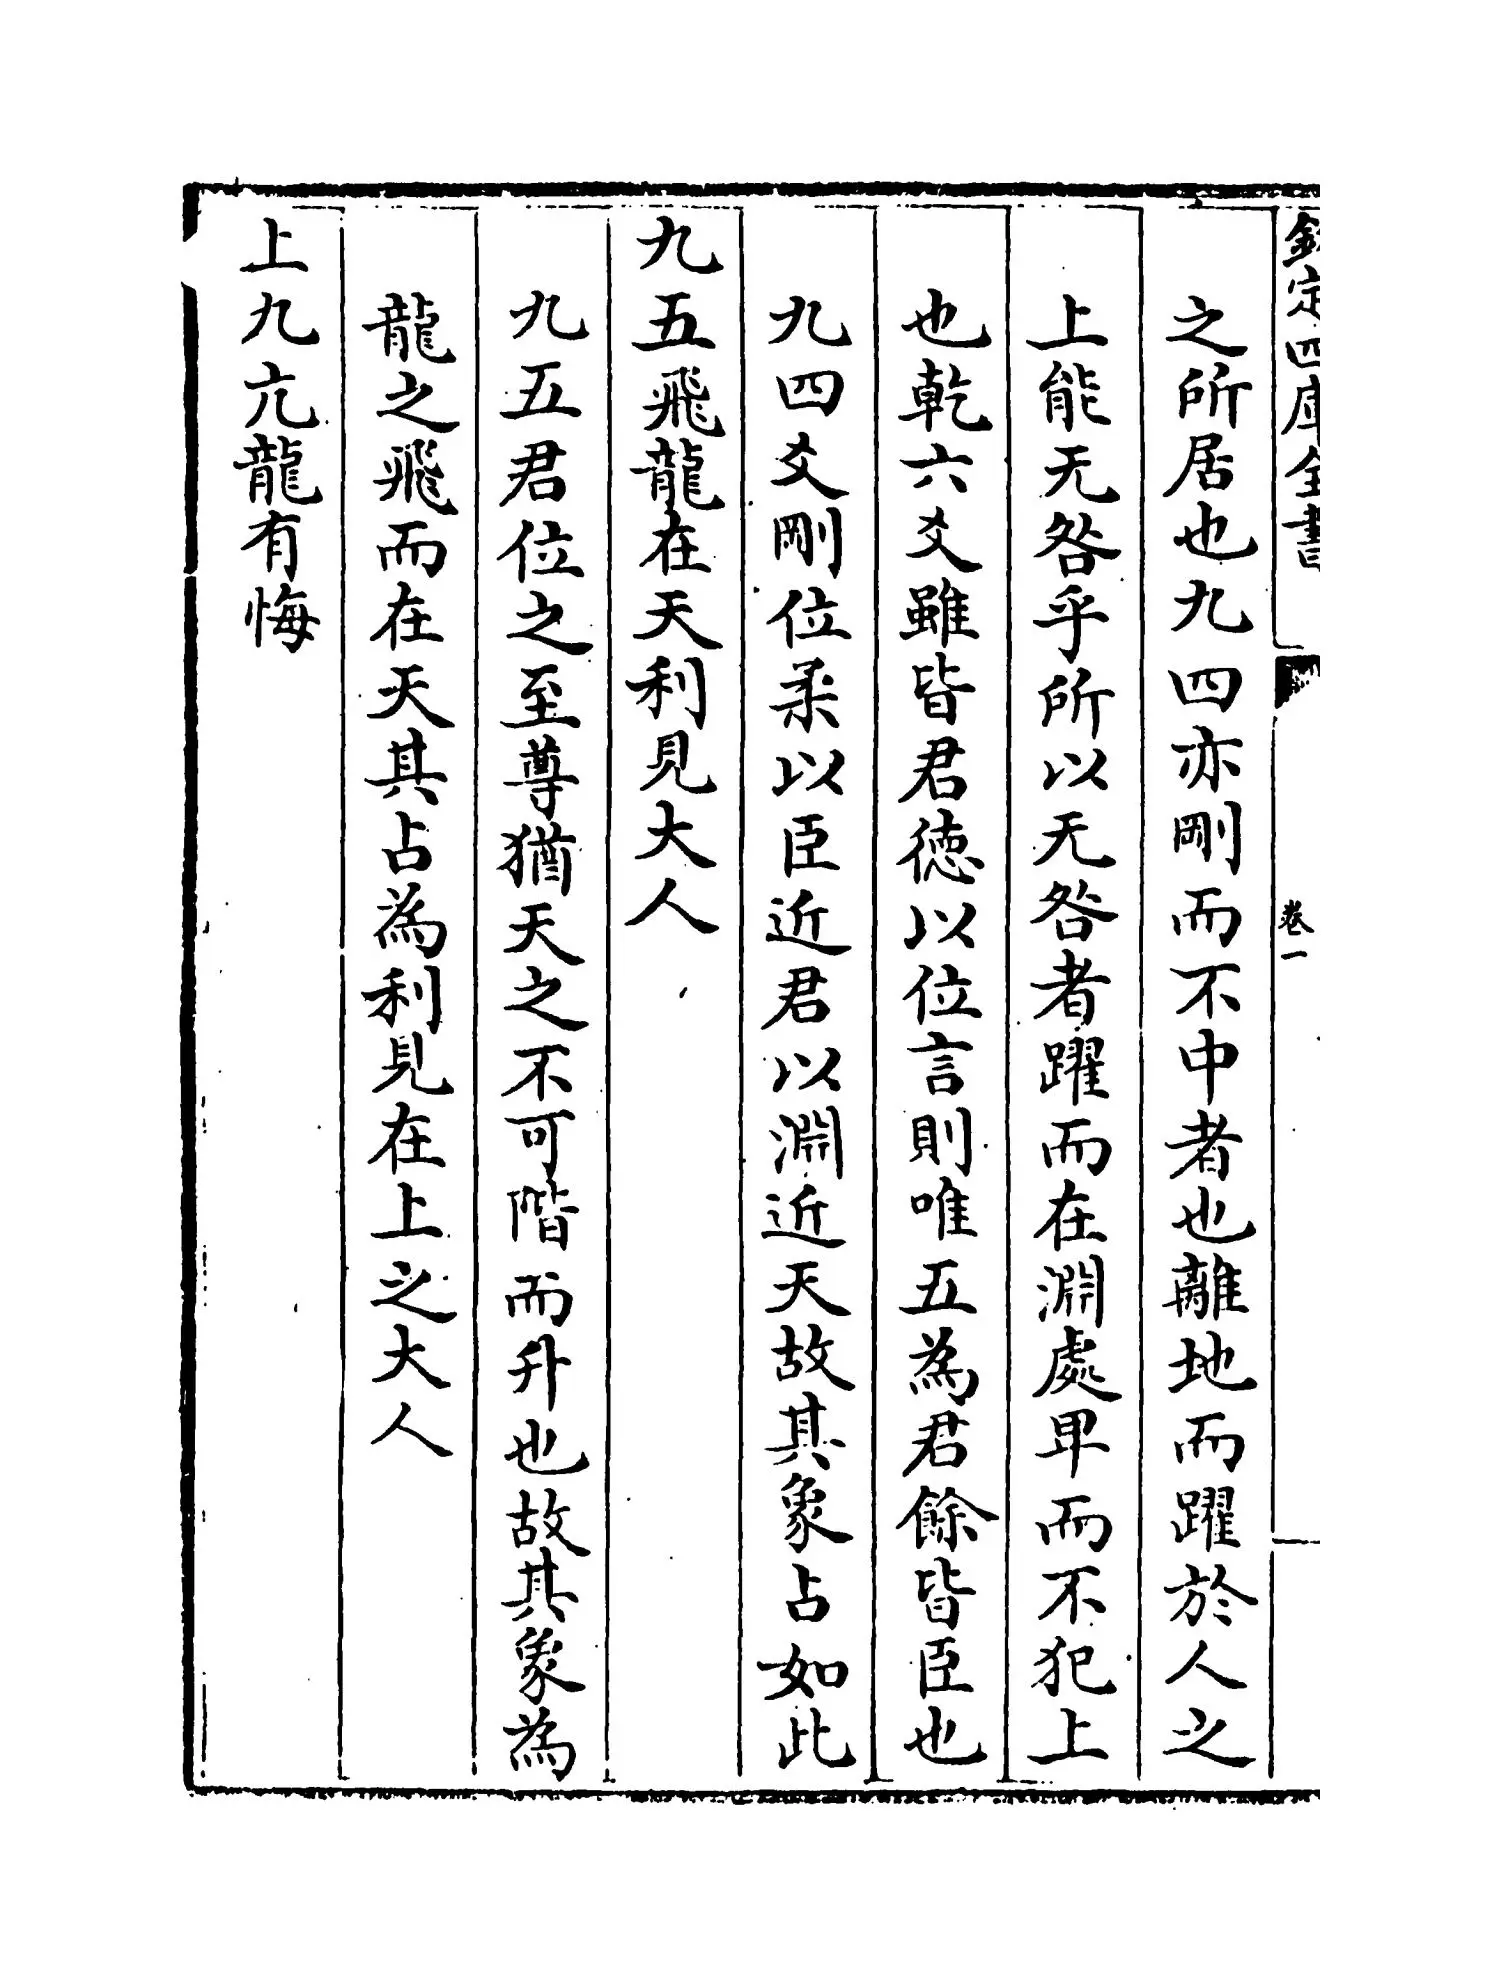 欽定四庫全書
卷一
之所居也九四亦剛而不中者也離地而躍於人之
上能无咎乎所以无咎者躍而在淵處卑而不犯上
也乾六爻雖皆君德以位言則唯五為君餘皆臣也
九四爻剛位柔以臣近君以淵近天故其象占如此
九五飛龍在天利見大人
九五君位之至尊猶天之不可階而升也故其象為
龍之飛而在天其占為利見在上之大人
上九亢龍有悔